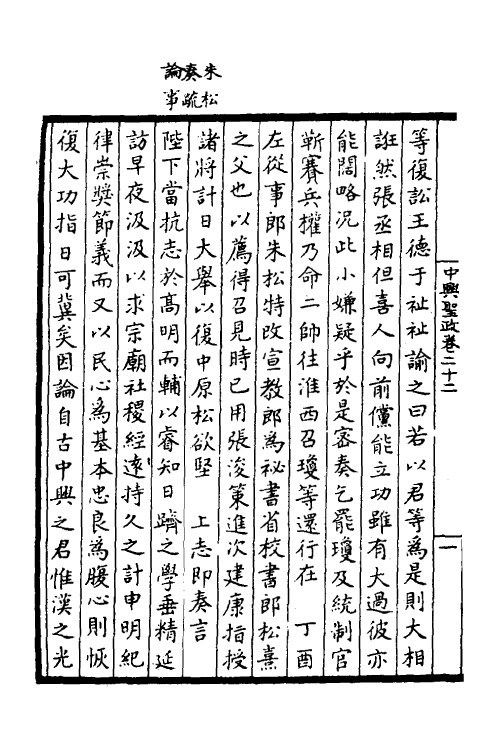 朱松
奏疏
論事
中興聖政卷二十二
一
等復訟王德于祉祉諭之曰若以君等爲是則大相
誑然張丞相但喜人向前儻能立功雖有大過彼亦
能闊略況此小嫌疑乎於是密奏乞罷瓊及統制官
靳賽兵權乃命二帥往淮西召瓊等還行在　丁酉
左從事郎朱松特改宣教郎爲祕書省校書郎松熹
之父也以薦得召見時已用張浚策進次建康指授
諸將計日大舉以復中原松欲堅　上志即奏言
陛下當抗志於高明而輔以睿知日躋之學垂精延
訪早夜汲汲以求宗廟社稷經遠持久之計申明紀
律崇奬節義而又以民心爲基本忠良爲腹心則恢
復大功指日可冀矣因論自古中興之君惟漢之光